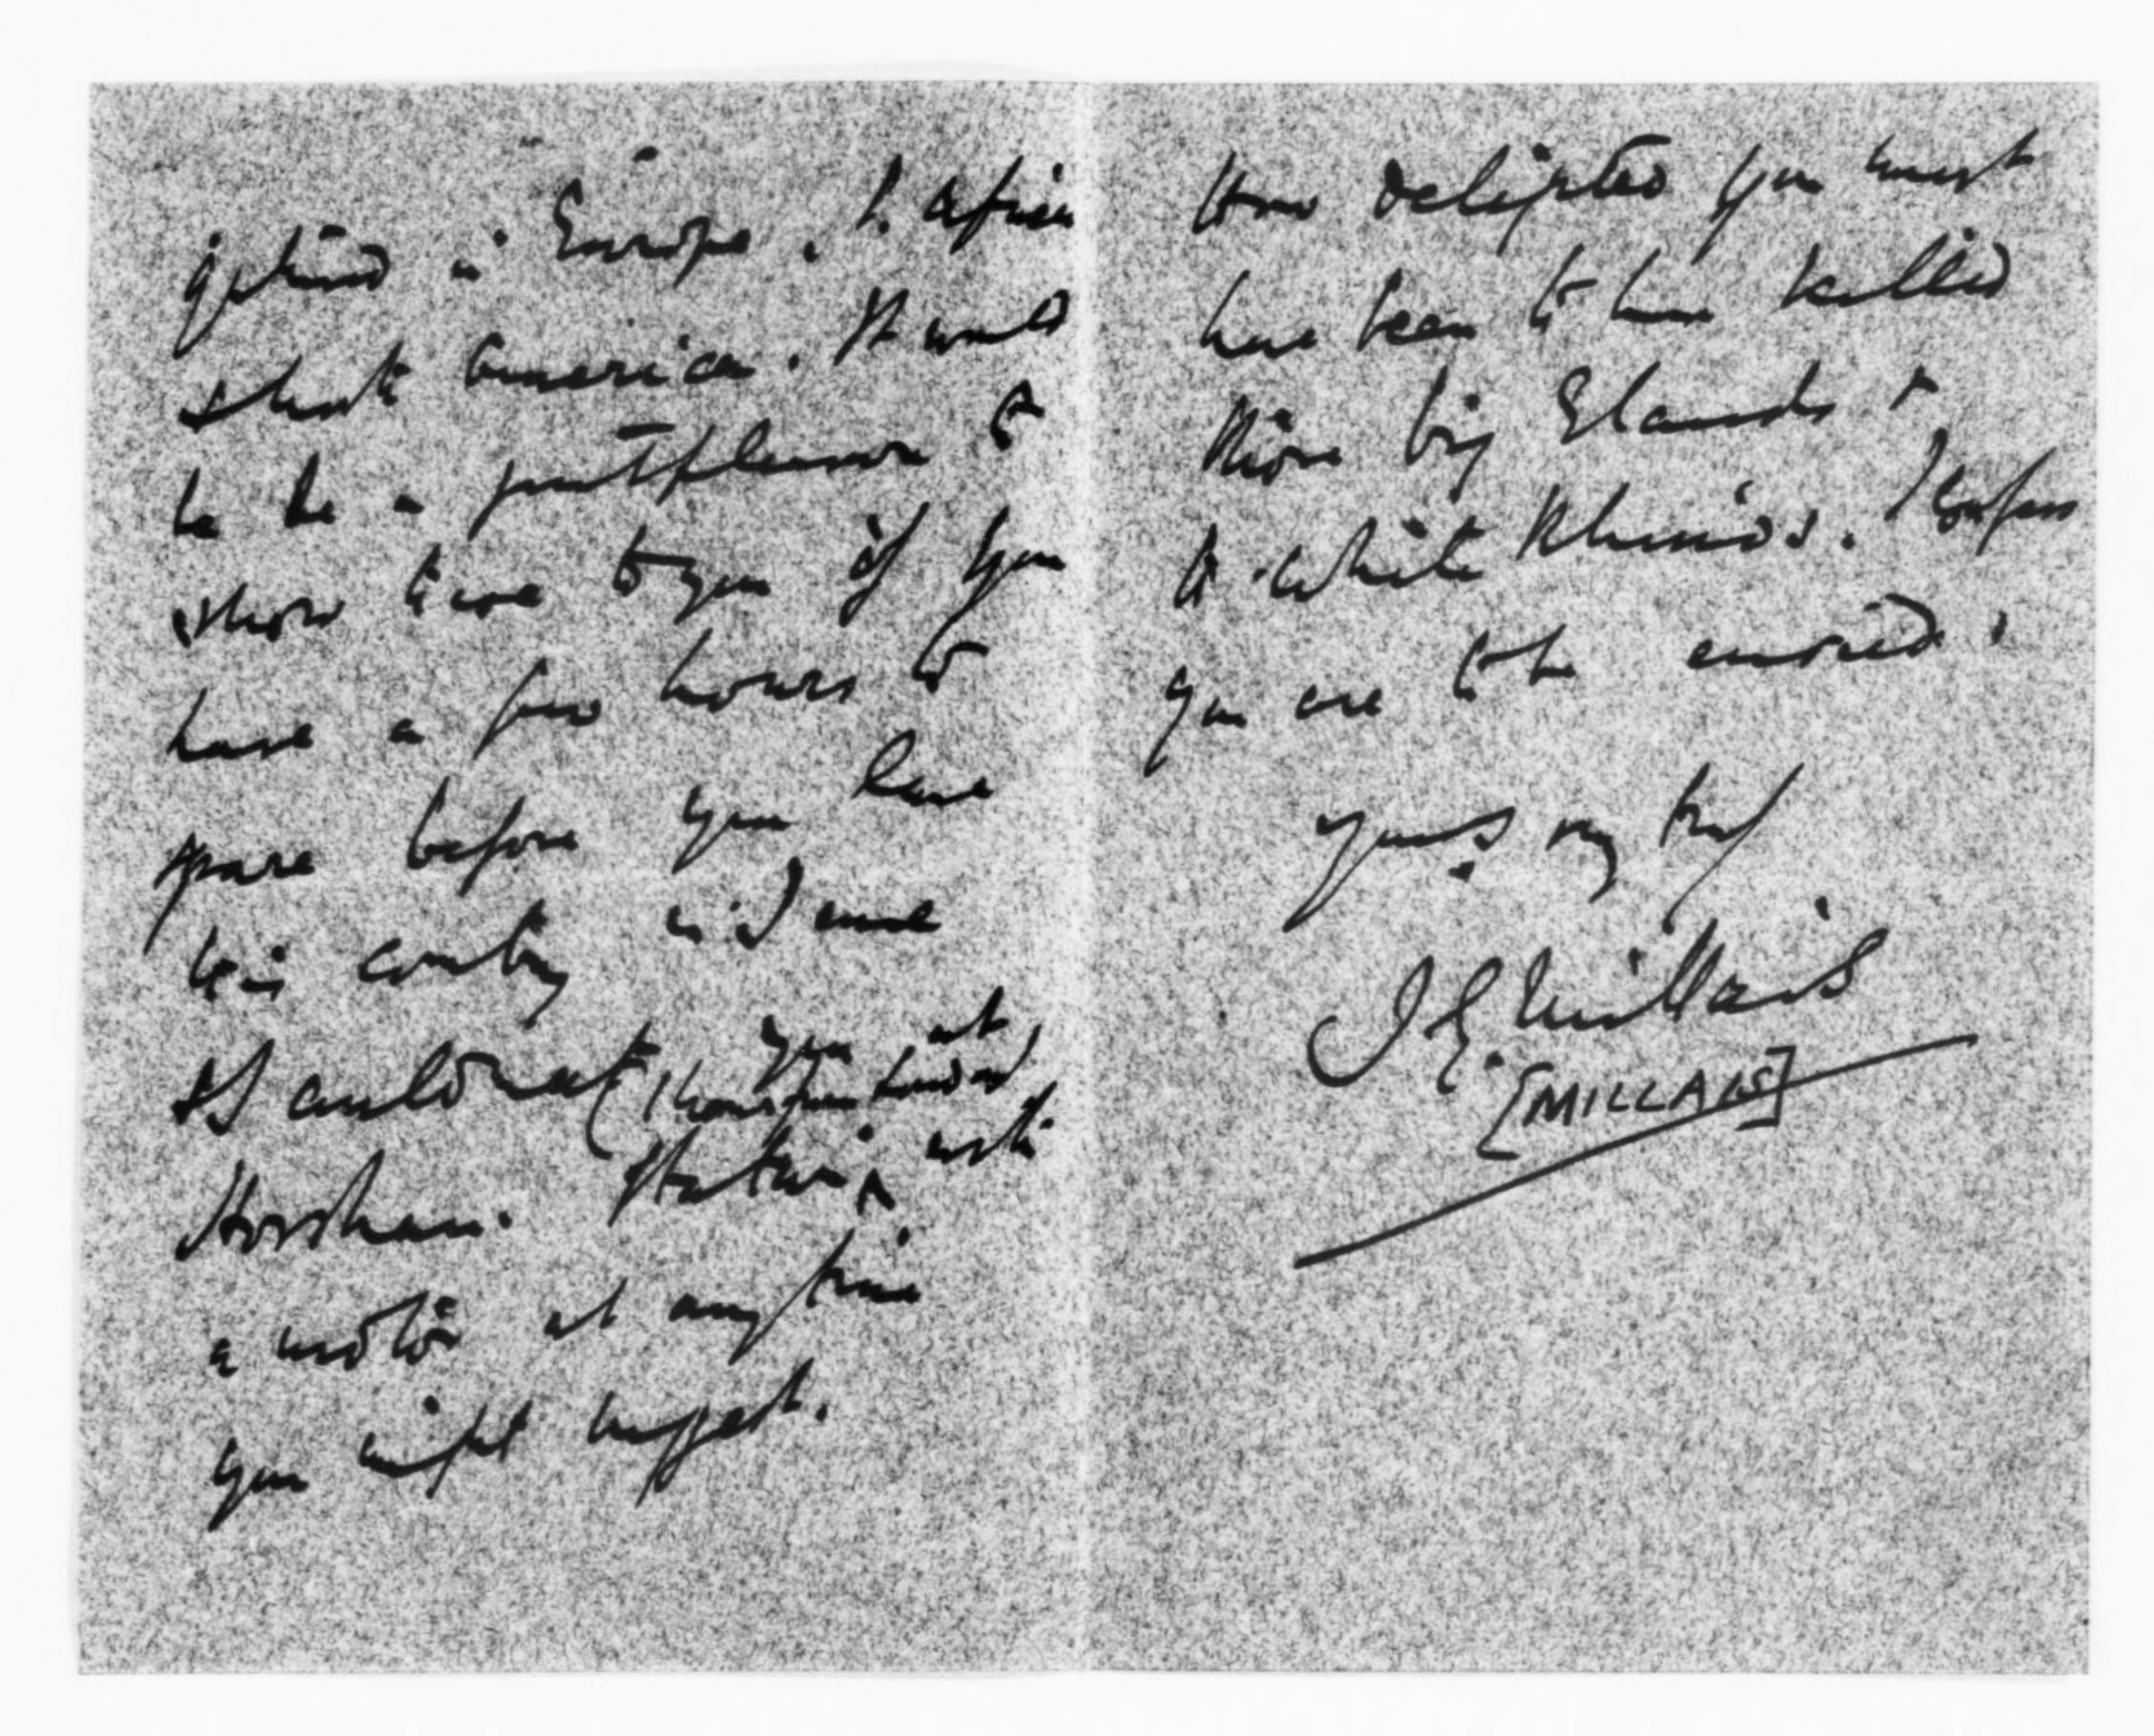 obtained in Europe, S. Africa
& North America. It would
be a great pleasure to
show these to you if you
have a few hours to
spare before you leave
this country and we
at
you
(1 hour from London)
Horsham Station with
a motor at any time
you might suggest.
How delighted you must
have been to have killed
those big Elands &
the White Rhinos. I confess
you are to be envied.
Yours very truly
J G Millais
[MILLAIS]